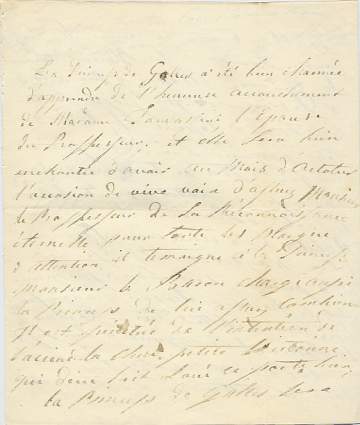 La Princesse de Galles a été bien charmée
d'apprendre de l'heureuse accouchement
de Madame l'Epouse
du Professeur, et elle sera bien
enchantée d'avoir au Mois d'Octobre
l'occasion de vive voix Monsieur
le Professeur de la Réconnoissance
éternelle pour toute les
d'attention et temoigné à la Princesse
Monsieur le Baron
la Princesse de lui combien
Elle est de l'attention de
la chere petite
qui dieu soit Loué ce porte bien,
la Princesse de Galles sera